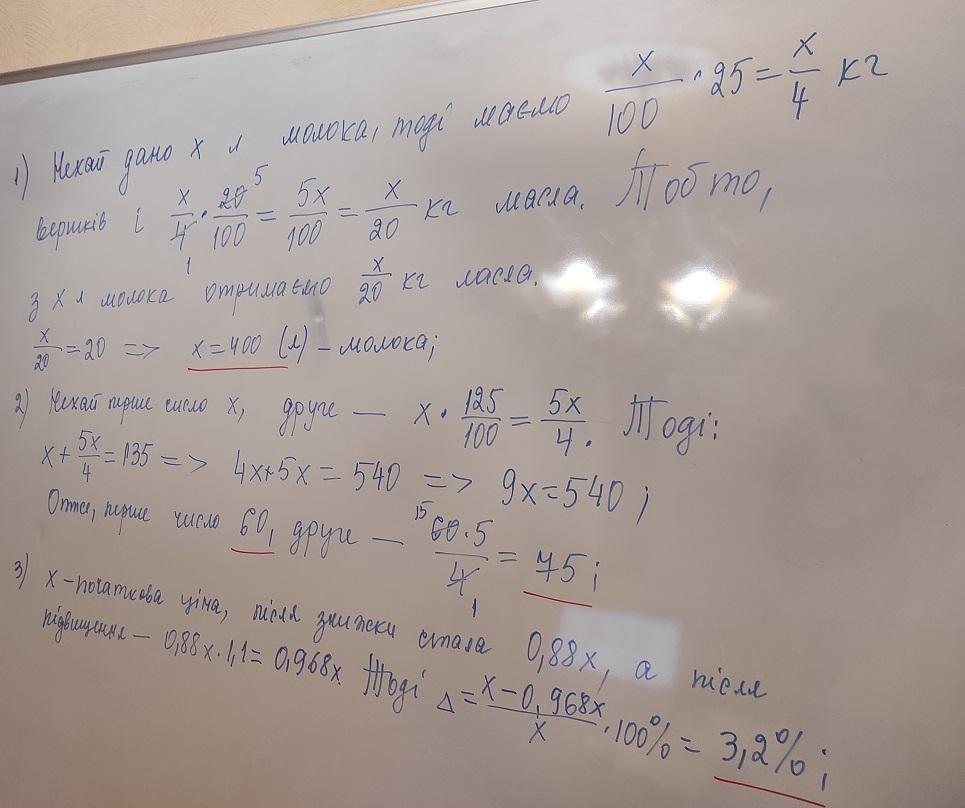 1) Нехай дано x л молока, тоді маємо x/100 · 25 = x/4 кг
вершків і x/4 · 20/100 = 5x/100 = x/20 кг масла. Тобто,
5
1
з x л молока отримаємо x/20 кг масла.
x/20 = 20 => x = 400 (л) – молока;
2) Нехай перше число x, друге — x · 125/100 = 5x/4. Тоді:
x + 5x/4 = 135 => 4x+5x = 540 => 9x = 540;
Отже, перше число 60, друге — 60·5/4 = 75;
15
1
3) x – початкова ціна, після знижки стала 0,88x, а після
підвищення – 0,88x · 1,1 = 0,968x. Тоді Δ = x – 0,968x/x · 100% = 3,2%;